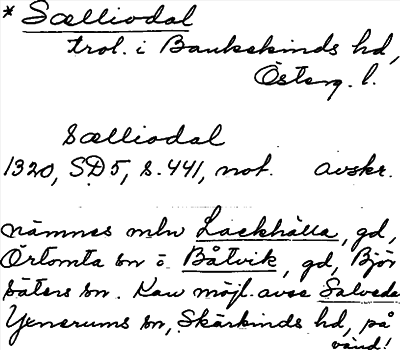 * Sælliodal
trol. i Bankekinds hd,
Österg. l.
Sælliodal
1320, SD5, s. 441, not. avskr.
nämnes mln Lackhälla, gd,
Örtomta sn o. Båtvik, gd, Björ
säters sn. Kan möjl. avse Salveda
Yxnerums sn, Skärkinds hd, på
vänd!